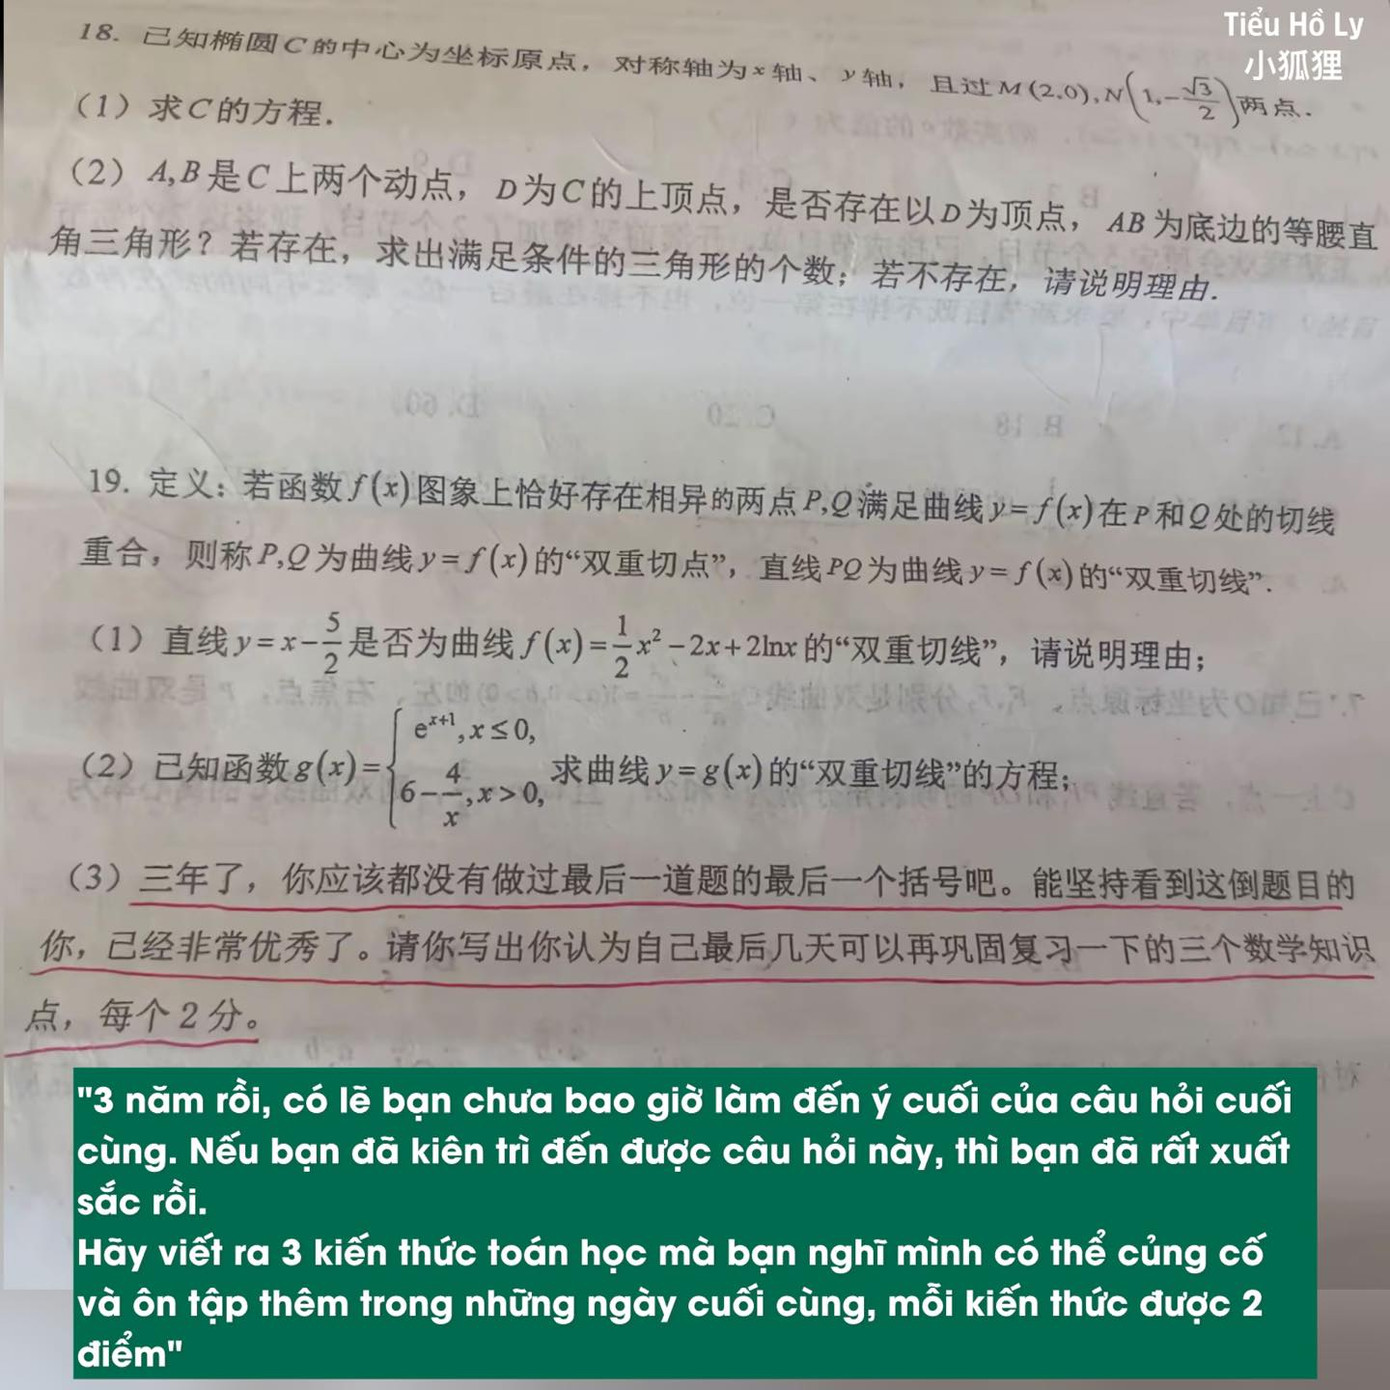 Tiểu Hồ Ly
小狐狸
18. 已知椭圆C的中心为坐标原点，对称轴为x轴、y轴，且过M(2,0),N(1,-√3/2)两点.
（1）求C的方程.
（2）A,B是C上两个动点，D为C的上顶点，是否存在以D为顶点，AB为底边的等腰直
角三角形？若存在，求出满足条件的三角形的个数；若不存在，请说明理由.
19. 定义：若函数f(x)图象上恰好存在相异的两点P,Q满足曲线y=f(x)在P和Q处的切线
重合，则称P,Q为曲线y=f(x)的“双重切点”，直线PQ为曲线y=f(x)的“双重切线”.
（1）直线y=x-5/2是否为曲线f(x)=1/2x²-2x+2lnx的“双重切线”，请说明理由；
（2）已知函数g(x)={e^{x+1},x≤0, 6-4/x,x>0, 求曲线y=g(x)的“双重切线”的方程；
（3）三年了，你应该都没有做过最后一道题的最后一个括号吧。能坚持看到这倒题目的
你，已经非常优秀了。请你写出你认为自己最后几天可以再巩固复习一下的三个数学知识
点，每个2分。
"3 năm rồi, có lẽ bạn chưa bao giờ làm đến ý cuối của câu hỏi cuối
cùng. Nếu bạn đã kiên trì đến được câu hỏi này, thì bạn đã rất xuất
sắc rồi.
Hãy viết ra 3 kiến thức toán học mà bạn nghĩ mình có thể củng cố
và ôn tập thêm trong những ngày cuối cùng, mỗi kiến thức được 2
điểm"